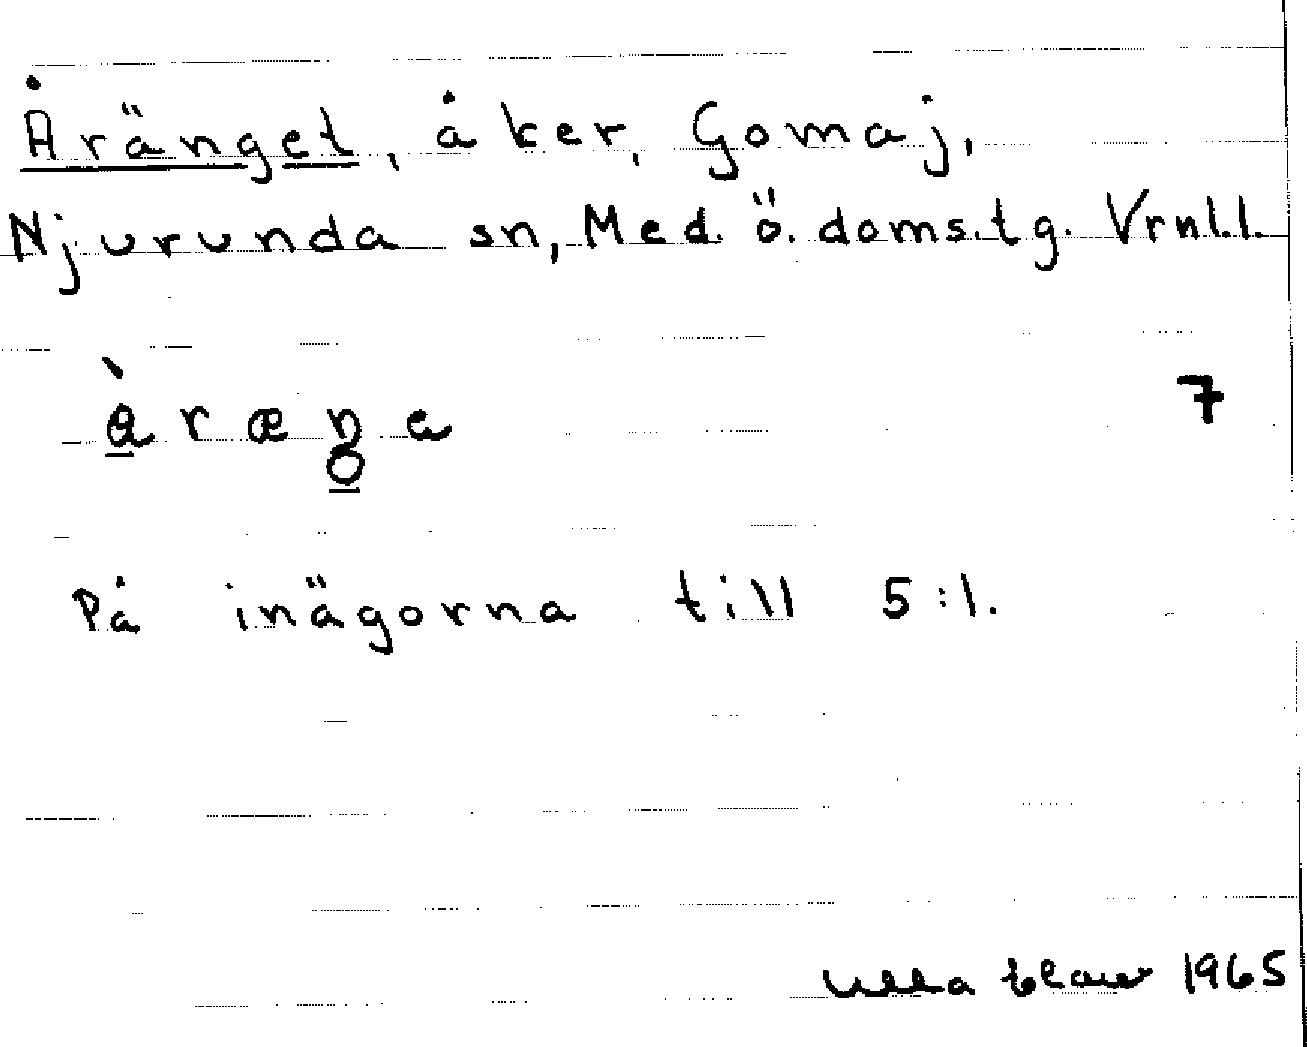 Åränget, åker, Gomaj,
Njurunda sn, Med. ö. doms.tg. Vrnl.l.
àræŋa
7
På inägorna till 5:1.
Ulla 1965